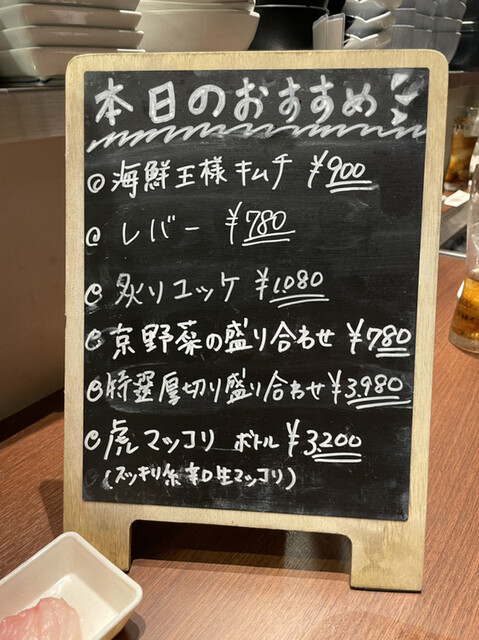 本日のおすすめ
◎海鮮王様キムチ ¥900
◎レバー ¥780
◎炙りユッケ ¥1,080
◎京野菜の盛り合わせ ¥780
◎特選厚切り盛り合わせ ¥3,980
◎虎マッコリ ボトル ¥3,200
(スッキリ系辛口生マッコリ)